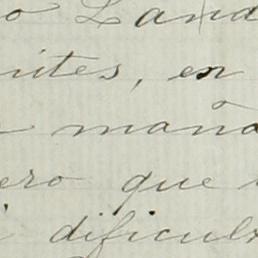 o Land
nites, en
maña
ero que
dificul